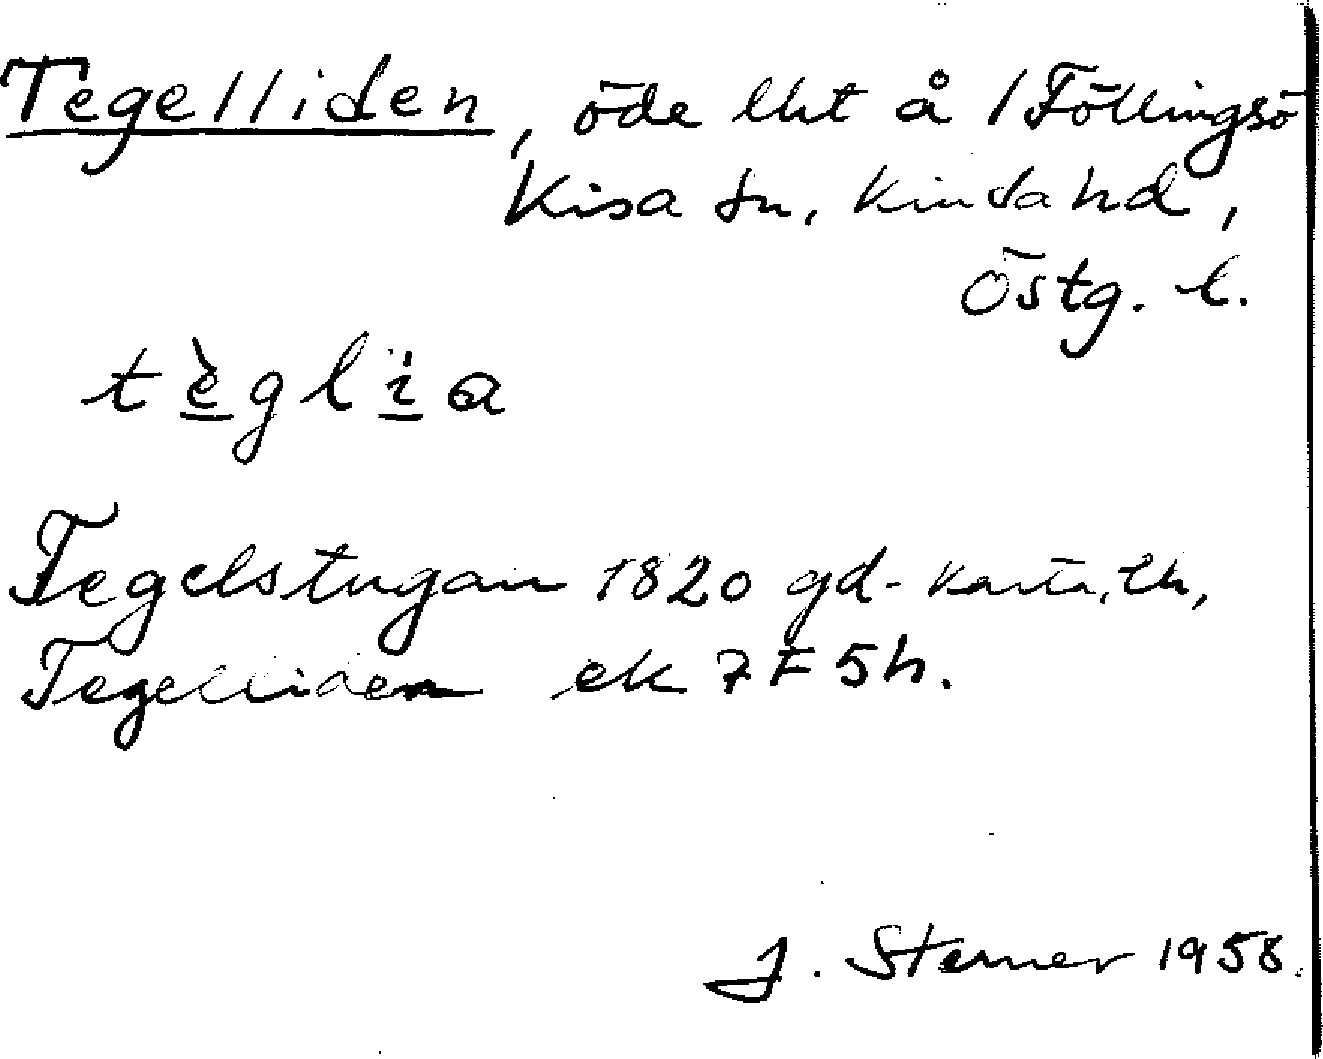 Tegelliden, öde lht å /Föllingsö
Kisa sn, Kinda hd,
Östg. l.
tègli̇a
Tegelstugan 1820 gd-karta, lh,
Tegelliden ek 7F5h.
J. Sterner 1958.